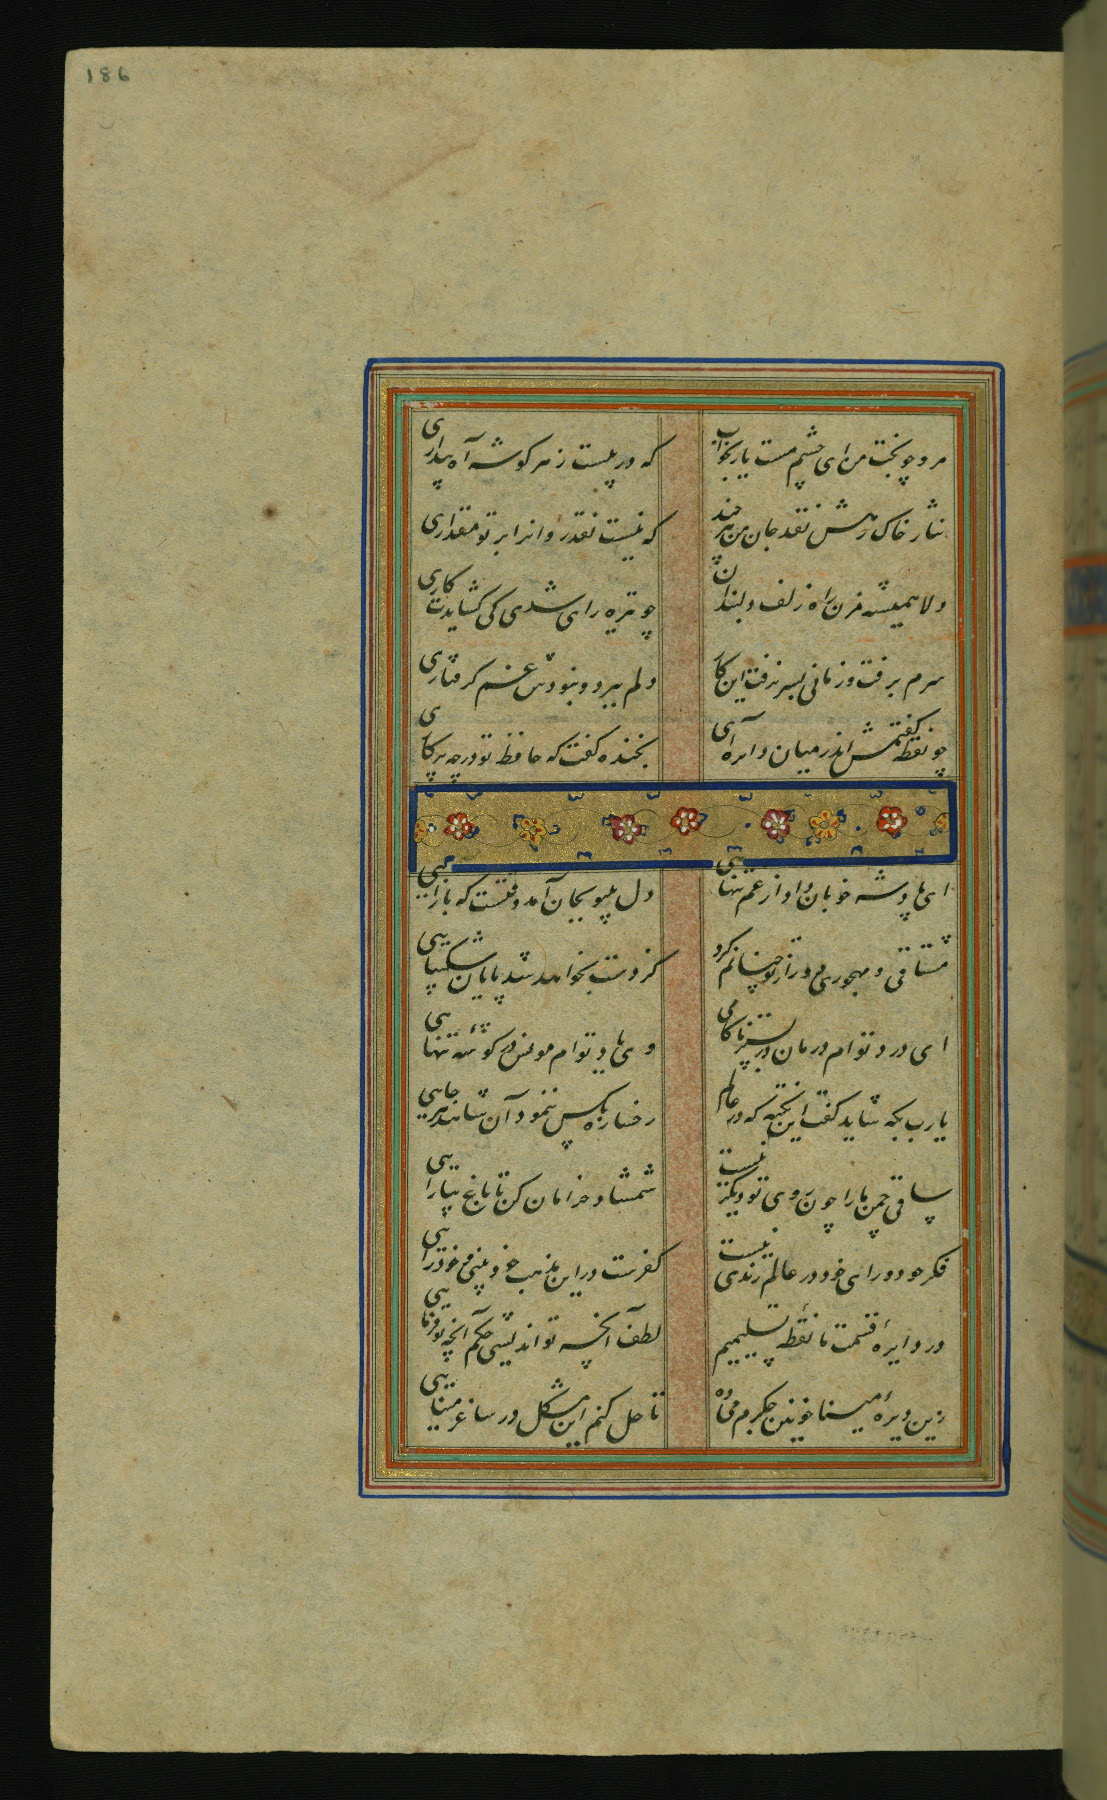 186
مرو چو بخت من ای چشم مست یار بخواب
که در پیست ز هر گوشه آه بیداری
نثار خاک رهش نقد جان من هر چند
که نیست نقد روانرا بر تو مقداری
دلا همیشه مزن راه زلف دلبندان
چو تیره رای شدی کی کشایدت کاری
سرم برفت و زمانی بسر نرفت این کار
دلم ببرد و نبودش غم گرفتاری
چو نقطه گفتمش اندر میان دایره آی
بخنده گفت که حافظ تو در چه پرکاری
ای پادشه خوبان داد از غم تنهایی
دل بیتو بجان آمد وقتست که بازایی
مشتاقی و مهجوری دور از تو چنانم کرد
کز دست بخواهد شد پایان شکیبایی
ای درد توام درمان در بستر ناکامی
وی یاد توام مونس در گوشه تنهایی
یارب بکه شاید گفت این نکته که در عالم
رخساره بکس ننمود آن شاهد هرجایی
ساقی چمن ما را چون روی تو دیگر نیست
شمشاد خرامان کن تا باغ بیارایی
فکر خود و رای خود در عالم رندی نیست
کفرست در این مذهب خودبینی و خودرایی
در دایره قسمت ما نقطه تسلیمیم
لطف آنچه تو اندیشی حکم آنچه تو فرمایی
زین دیره مینا خونین جگرم می ده
تا حل کنم این مشکل در ساغر مینایی